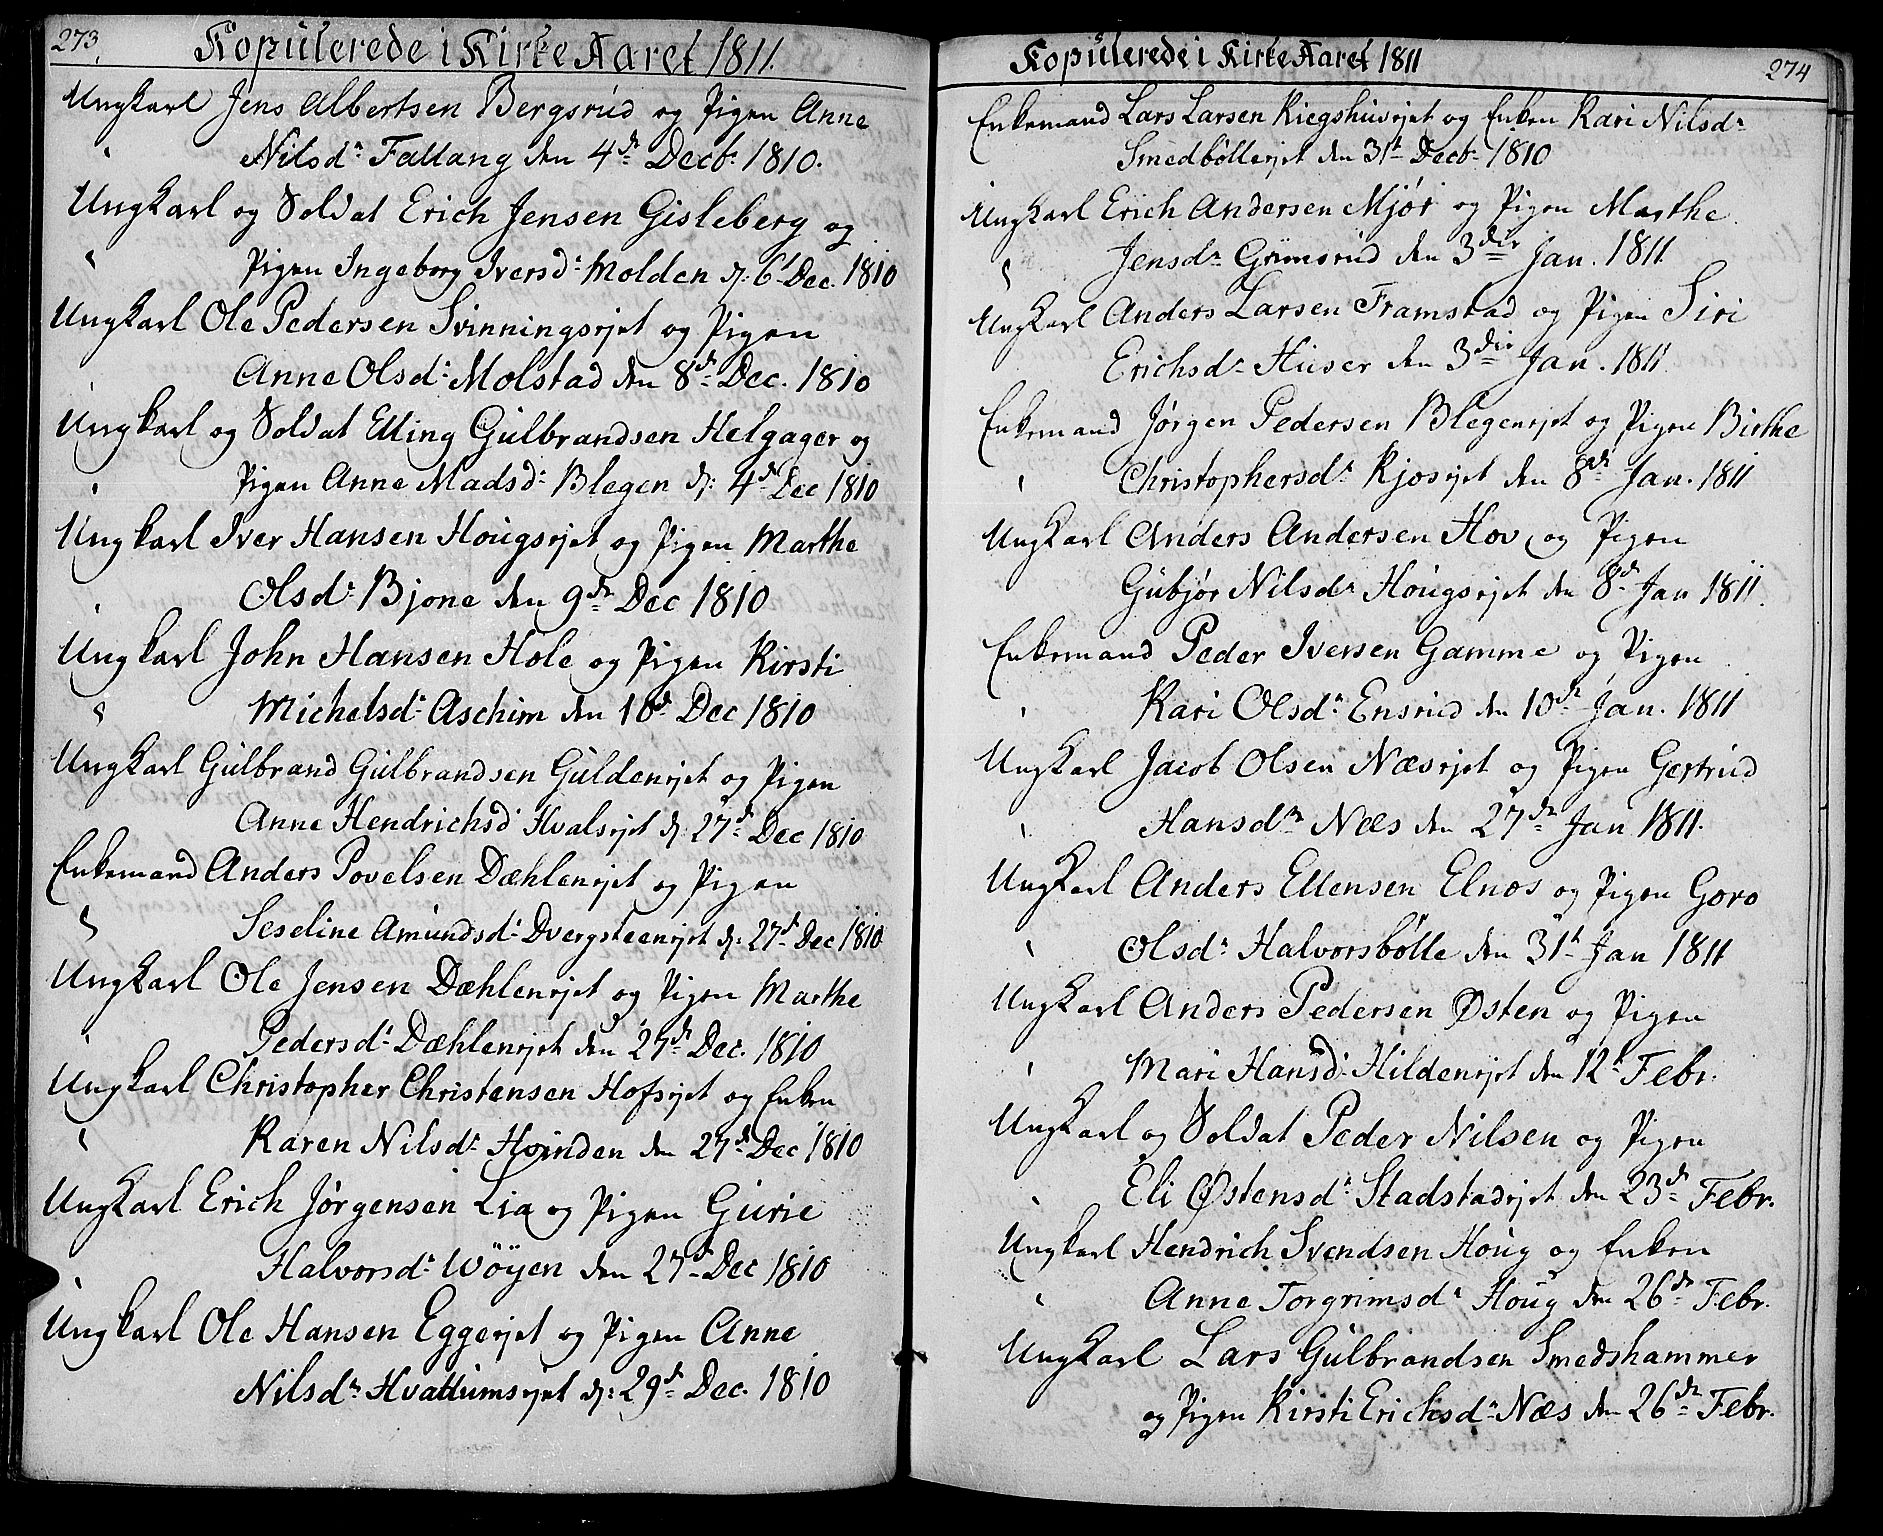 273.
Kopulerede i Kirke Aaret 1811.
Ungkarl Jens Albertsen Bergsrud og Pigen Anne
Nilsdr Fallang den 4de Decbr 1810.
Ungkarl og Soldat Erich Jensen Gisleberg og
Pigen Ingeborg Iversdr Molden d: 6t Dec. 1810
Ungkarl Ole Pedersen Svinningsejet og Pigen
Anne Olsdr Molstad den 8de Dec. 1810
Ungkarl og Soldat Elling Gulbrandsen Helgager og
Pigen Anne Madsdr Blegen d: 4de Dec 1810
Ungkarl Iver Hansen Hougsejet og Pigen Marthe
Olsdr Bjone den 9de Dec 1810
Ungkarl John Hansen Hole og Pigen Kirsti
Michelsdr Aschim den 10de Dec 1810
Ungkarl Gulbrand Gulbrandsen Guldenejet og Pigen
Anne Hendrichsdr Hvalsejet d: 27de Dec 1810
Enkemand Anders Povelsen Dæhlenejet og Pigen
Seseline Amundsdr Dvergsteenejet d: 27de Dec 1810
Ungkarl Ole Jensen Dæhlenejet og Pigen Marthe
Pedersdr Dæhlenejet den 27de Dec. 1810
Ungkarl Christopher Christensen Hofsejet og Enken
Karen Nilsdr Hvinden den 27de Dec 1810
Ungkarl Erich Jørgensen Lia og Pigen Gurie
Halvorsdr Wøyen den 27de Dec 1810
Ungkarl Ole Hansen Eggeejet og Pigen Anne
Nilsdr Hvattumsejet d: 29de Dec. 1810
Kopulerede i Kirke Aaret 1811
274
Enkemand Lars Larsen Kiegshusejet og Enken Kari Nilsdr
Smedbølleejet den 31t Decbr 1810
Ungkarl Erich Andersen Mjør og Pigen Marthe
Jensdr Grimsrud den 3die Jan. 1811
Ungkarl Anders Larsen Framstad og Pigen Siri
Erichsdr Huser den 3die Jan. 1811.
Enkemand Jørgen Pedersen Blegenejet og Pigen Birthe
Christophersdr Kjosejet den 8de Jan. 1811
Ungkarl Anders Andersen Hov og Pigen
Gubjør Nilsdr Hougsejet den 8de Jan 1811.
Enkemand Peder Iversen Gamme og Pigen
Kari Olsdr Ensrud den 10de Jan. 1811
Ungkarl Jacob Olsen Næsejet og Pigen Gertrud
Hansdr Næs den 27de Jan 1811.
Ungkarl Anders Ellensen Elnes og Pigen Goro
Olsdr Halvorsbølle den 31t Jan 1811
Ungkarl Anders Pedersen Østen og Pigen
Mari Hansdr Hildenejet den 12t Febr.
Ungkarl og Soldat Peder Nilsen og Pigen
Eli Østensdr Stadstadejet den 23de Febr.
Ungkarl Hendrich Svendsen Houg og Enken
Anne Torgrimsdr Houg den 26de Febr.
Ungkarl Lars Gulbrandsen Smedshammer
og Pigen Kirsti Erichsdr Næs den 26de Febr.